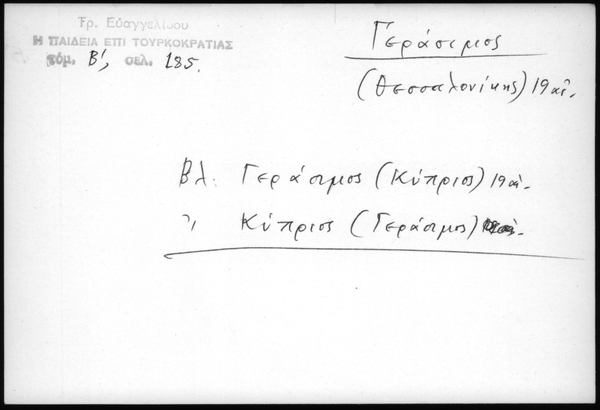 Τρ. Εὐαγγελίδου
Η ΠΑΙΔΕΙΑ ΕΠΙ ΤΟΥΡΚΟΚΡΑΤΙΑΣ
τόμ. Β', σελ. 185.
Γεράσιμος
(Θεσσαλονίκης) 19 αἰ.
Βλ. Γεράσιμος (Κύπριος) 19 αἰ.
" Κύπριος (Γεράσιμος)